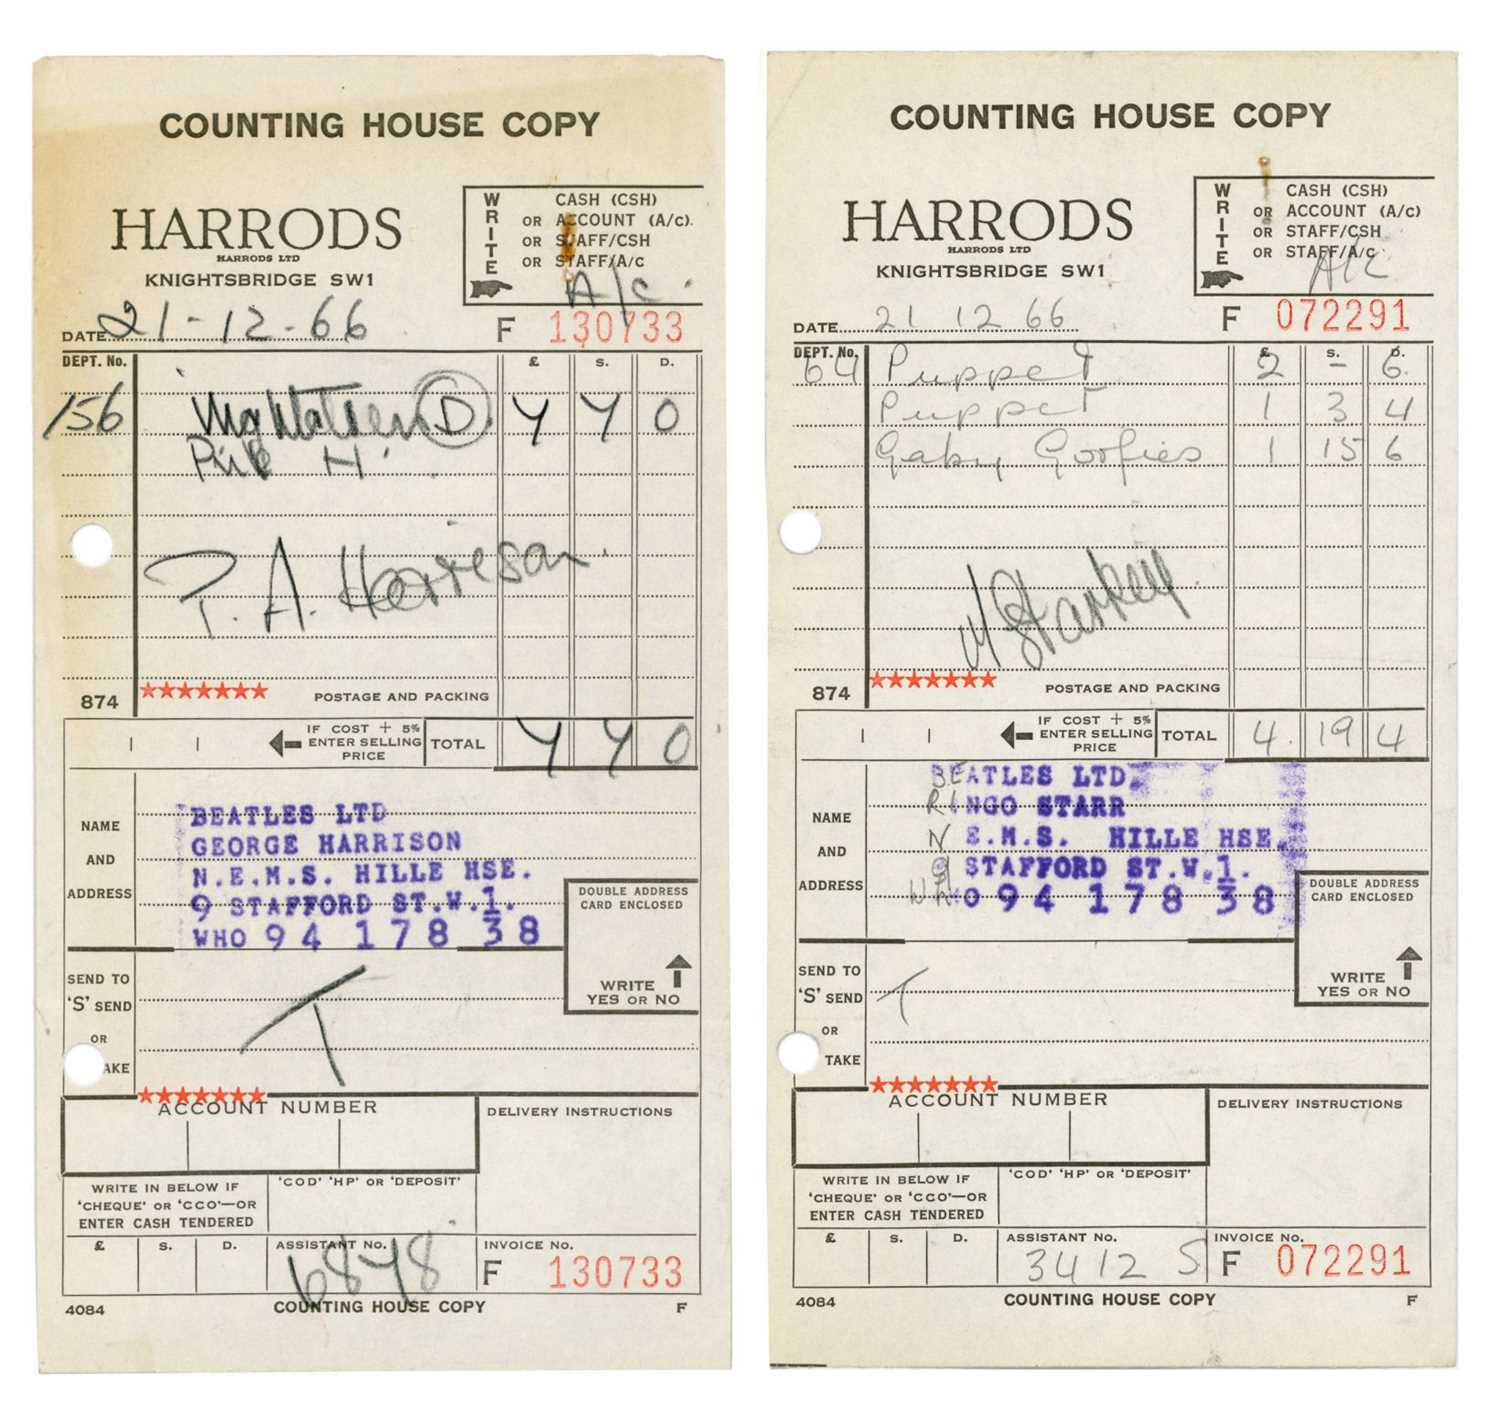 COUNTING HOUSE COPY
HARRODS
HARRODS LTD
KNIGHTSBRIDGE SW1
WRITE
CASH (CSH)
OR ACCOUNT (A/C).
OR STAFF/CSH
OR STAFF/A/C
A/c.
DATE 21-12-66
F 130733
DEPT. No. £ S. D.
156 D 4 4 0
Pink H.
P. A. Harrison.
874 ★★★★★★★ POSTAGE AND PACKING
IF COST + 5%
ENTER SELLING
PRICE
TOTAL 4 4 0
NAME
AND
ADDRESS
BEATLES LTD
GEORGE HARRISON
N.E.M.S. HILLE HSE.
9 STAFFORD ST.W.1.
WHO 94 178 38
DOUBLE ADDRESS
CARD ENCLOSED
WRITE
YES OR NO
SEND TO
'S' SEND
OR
AKE
T
★★★★★★★
ACCOUNT NUMBER
DELIVERY INSTRUCTIONS
WRITE IN BELOW IF
'CHEQUE' OR 'CCO'—OR
ENTER CASH TENDERED
'COD' 'HP' OR 'DEPOSIT'
£ S. D.
ASSISTANT NO.
6848
INVOICE NO.
F 130733
4084 COUNTING HOUSE COPY F
COUNTING HOUSE COPY
HARRODS
HARRODS LTD
KNIGHTSBRIDGE SW1
WRITE
CASH (CSH)
OR ACCOUNT (A/C)
OR STAFF/CSH
OR STAFF/A/C
A/C
DATE 21 12 66
F 072291
DEPT. No. £ S. D.
64 Puppet 2 - 6.
Puppet 1 3 4
Gaby Goofies 1 15 6
M Starkey
874 ★★★★★★★ POSTAGE AND PACKING
IF COST + 5%
ENTER SELLING
PRICE
TOTAL 4. 19 4
NAME
AND
ADDRESS
BEATLES LTD.
RINGO STARR
N E.M.S. HILLE HSE.
9 STAFFORD ST.W.1.
WHO 94 178 38
DOUBLE ADDRESS
CARD ENCLOSED
WRITE
YES OR NO
SEND TO
'S' SEND
OR
TAKE
T
★★★★★★★
ACCOUNT NUMBER
DELIVERY INSTRUCTIONS
WRITE IN BELOW IF
'CHEQUE' OR 'CCO'—OR
ENTER CASH TENDERED
'COD' 'HP' OR 'DEPOSIT'
£ S. D.
ASSISTANT NO.
3412 S
INVOICE NO.
F 072291
4084 COUNTING HOUSE COPY F